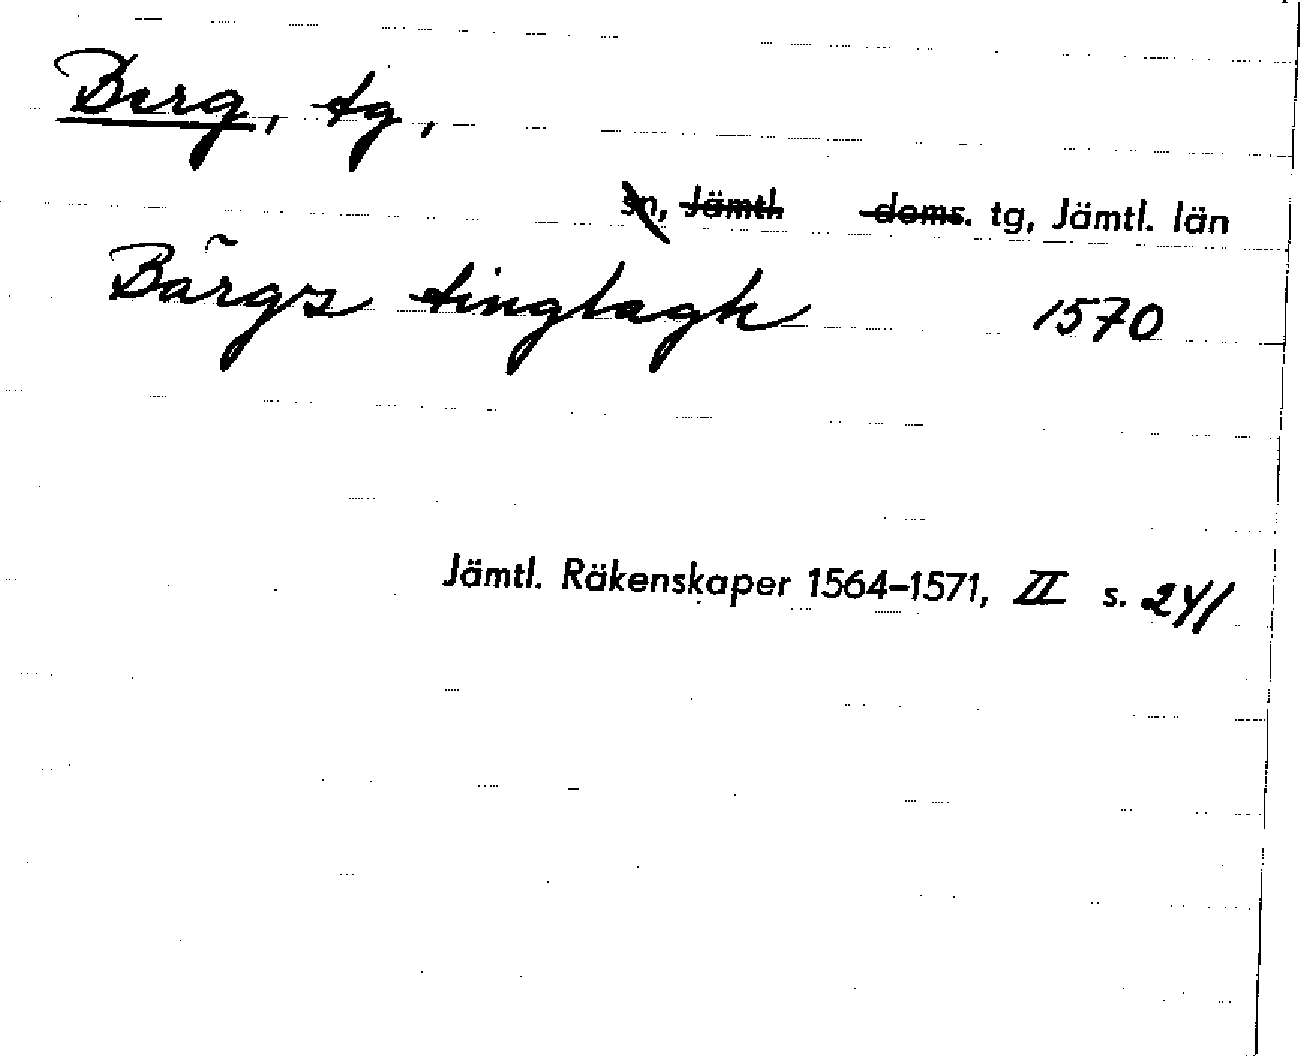 Berg, tg,
sn, Jämtl. doms. tg, Jämtl. län
Bärgs tinglagh 1570
Jämtl. Räkenskaper 1564–1571, II s. 241